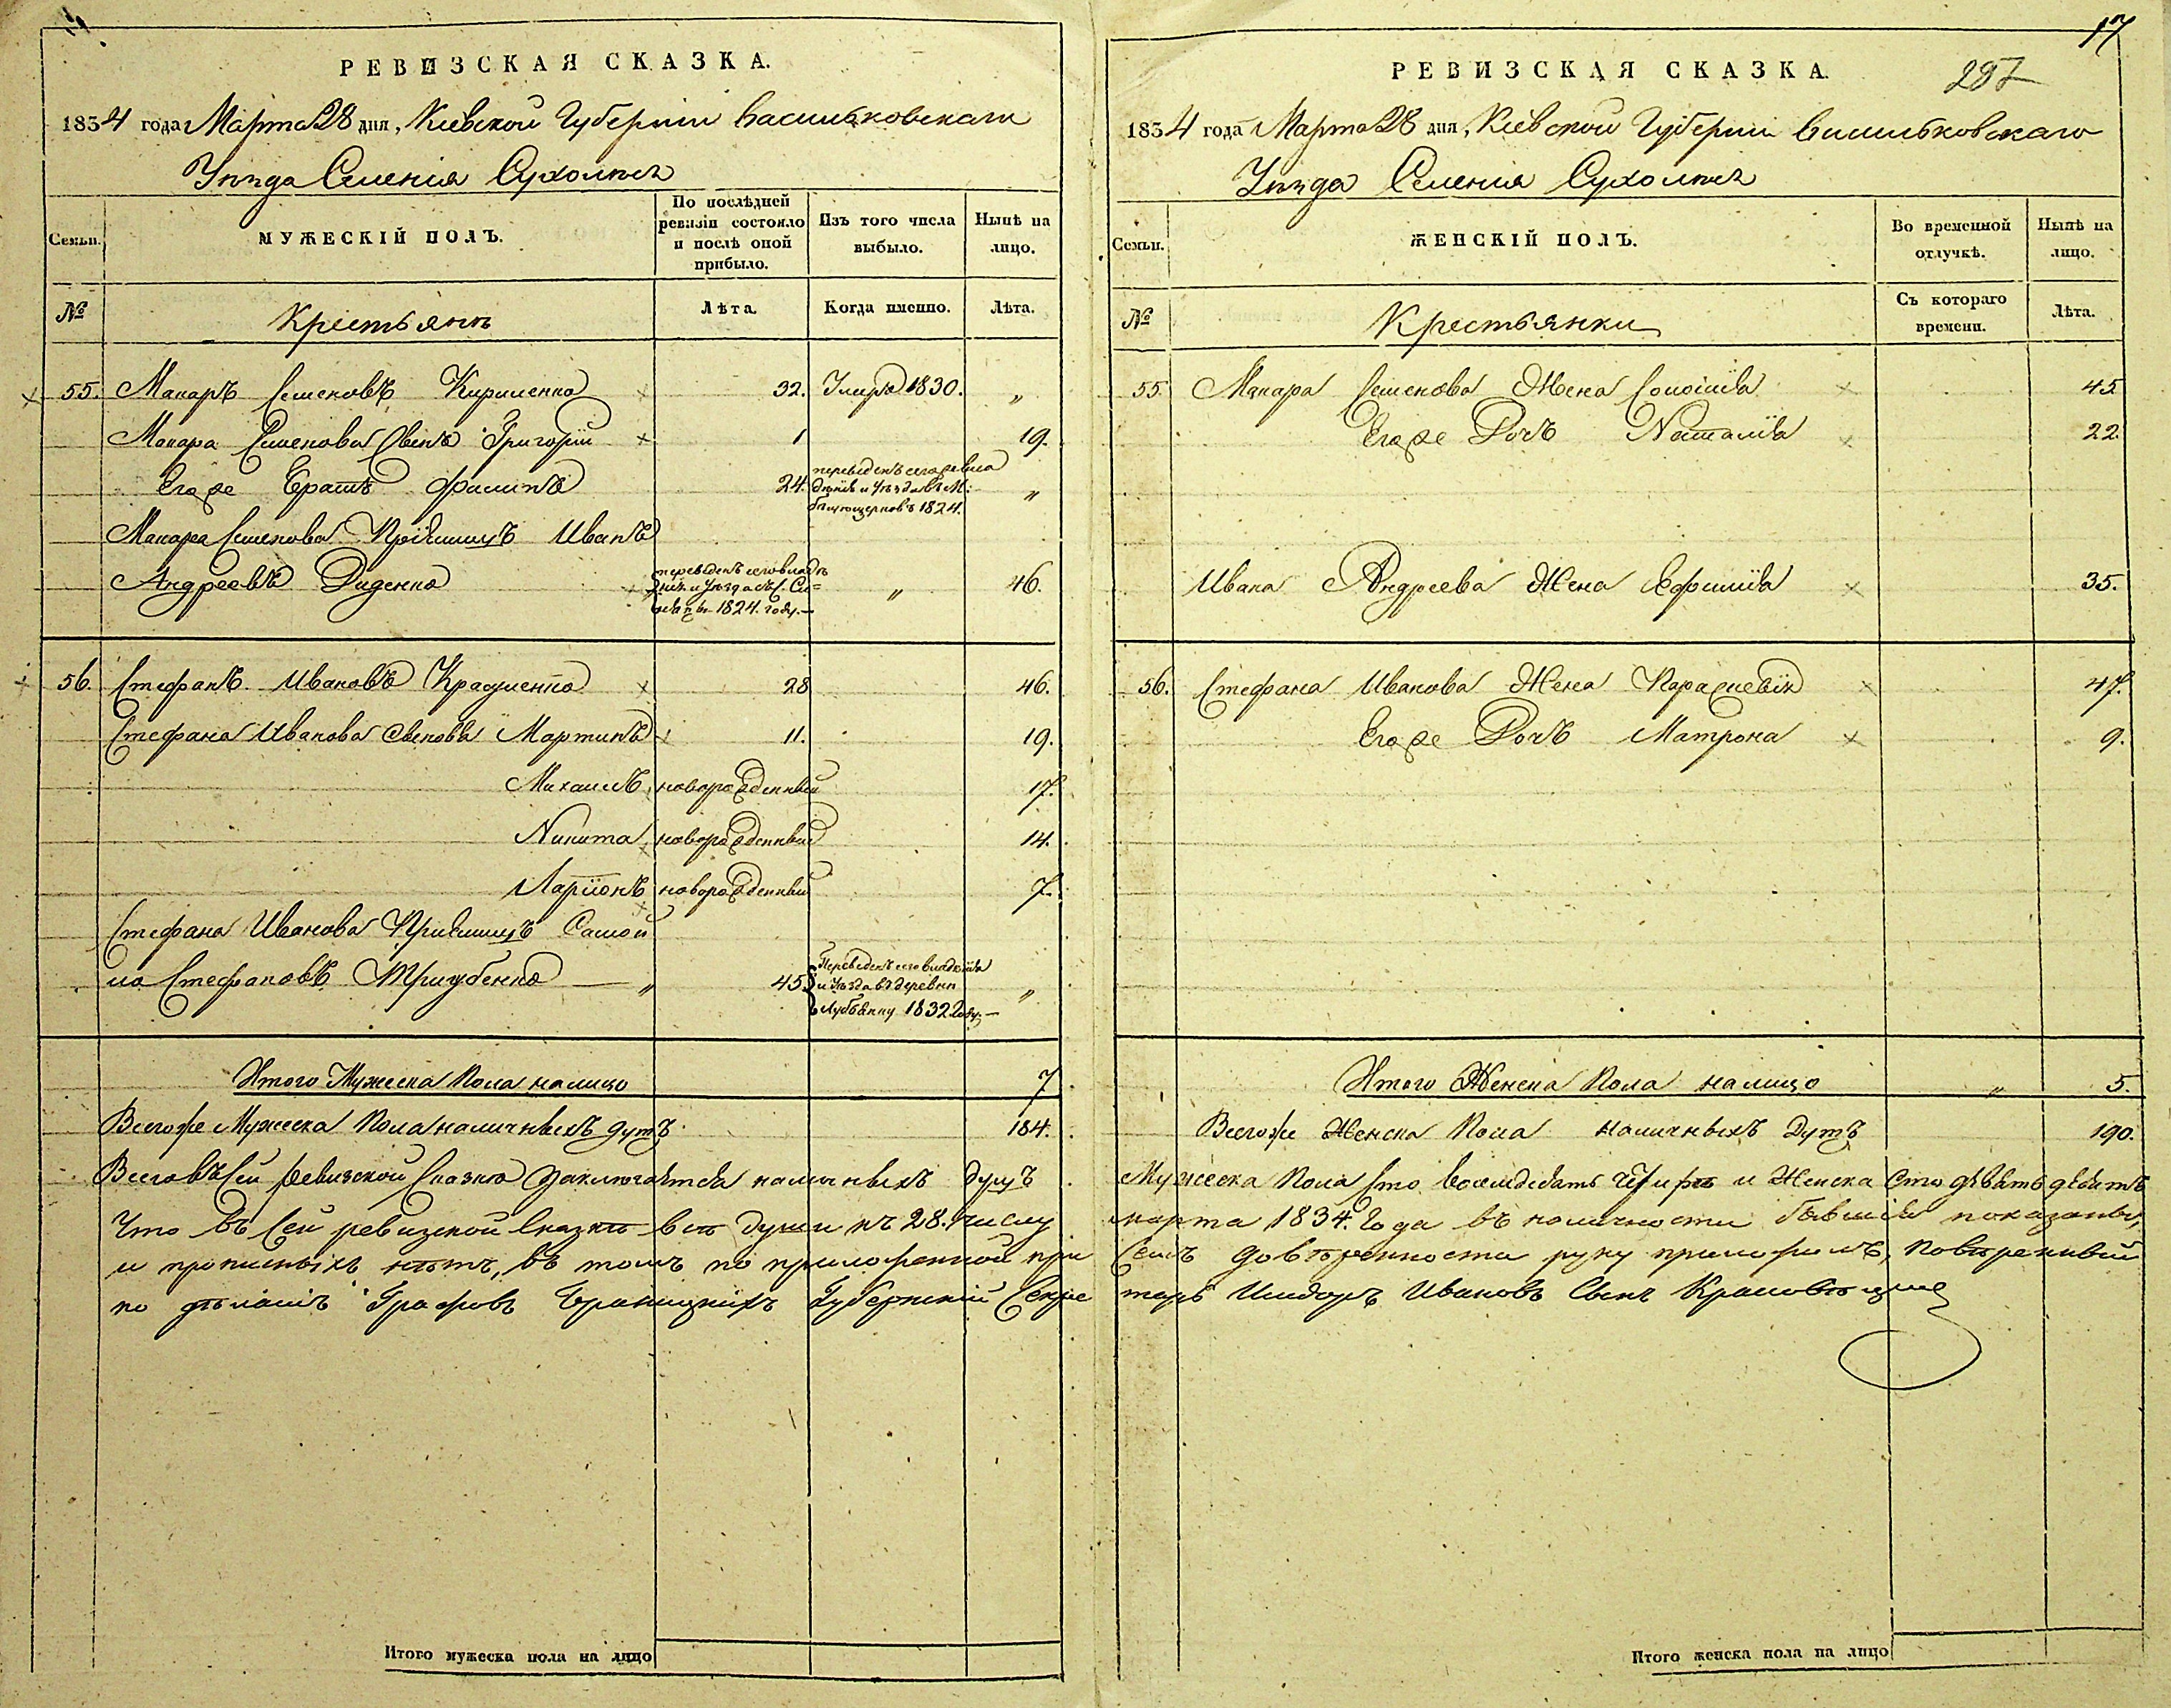 РЕВИЗСКАЯ СКАЗКА.
1834 года Марта 28 дня, Киевской Губернии Васильковскаго
Уѣзда Селенія Сухолѣсъ
Семьи.
МУЖЕСКІЙ ПОЛЪ.
По послѣдней ревизіи состояло и послѣ оной прибыло.
Изъ того числа выбыло.
Нынѣ на лицо.
№
Крестьянъ
Лѣта.
Когда именно.
Лѣта.
55. Макаръ Семеновъ Кириленко 32. Умеръ 1830. „
Макара Семенова Сынъ Григорій 1 19.
Его же Братъ Филипъ 24. переведенъ сего же вла
дѣнія и Уѣзда въ М:
1824. „
Макара Семенова Пріймицъ Иванъ
Андреевъ Диденко переведенъ сего владѣ
нія и Уѣзда съ С.
1824. году.— „ 46.
56. Стефанъ Ивановъ Кравченко 28 46.
Стефана Иванова Сыновья Мартинъ 11. 19.
Михаилъ новорожденный 17.
Никита новорожденный 14.
Ларіонъ новорожденный 7.
Стефана Иванова Пріймицъ Самой
ло Стефановъ Тригубенко „ 45. Переведенъ сего владѣнія
и Уѣзда въ деревню
1832 году.— „
Итого Мужеска Пола налицо 7
Всего же Мужеска Пола наличныхъ душъ 184.
Всего въ Сей Ревизской Сказкѣ заключается наличныхъ душъ
Что въ Сей ревизской Сказкѣ всѣ души къ 28. числу
и прописныхъ нѣтъ, въ томъ по приложенной при
по дѣламъ Графовъ Браницкихъ Губернскій Секре
Итого мужеска пола на лицо
17
287
РЕВИЗСКАЯ СКАЗКА.
1834 года Марта 28 дня, Кіевской Губерніи Васильковскаго
Уѣзда Селенія Сухолѣсъ
Семьи.
ЖЕНСКІЙ ПОЛЪ.
Во временной отлучкѣ.
Нынѣ на лицо.
№
Крестьянки
Съ котораго времени.
Лѣта.
55. Макара Семенова Жена Соломія 45
Его же Дочь Наталія 22.
Ивана Андреева Жена Ефимія 35.
56. Стефана Иванова Жена Параскевія 47.
Его же Дочь Матрона 9.
Итого Женска Пола налицо „ 5.
Всего же Женска Пола наличныхъ душъ 190.
Мужеска Пола Сто Восемдесятъ Четыре и Женска Сто девятьдесятъ
марта 1834. Года въ наличности бывшія показаны,
Семъ довѣренности руку приложилъ, Повѣренный
тарь Исидоръ Ивановъ Сынъ
Итого женска пола на лицо